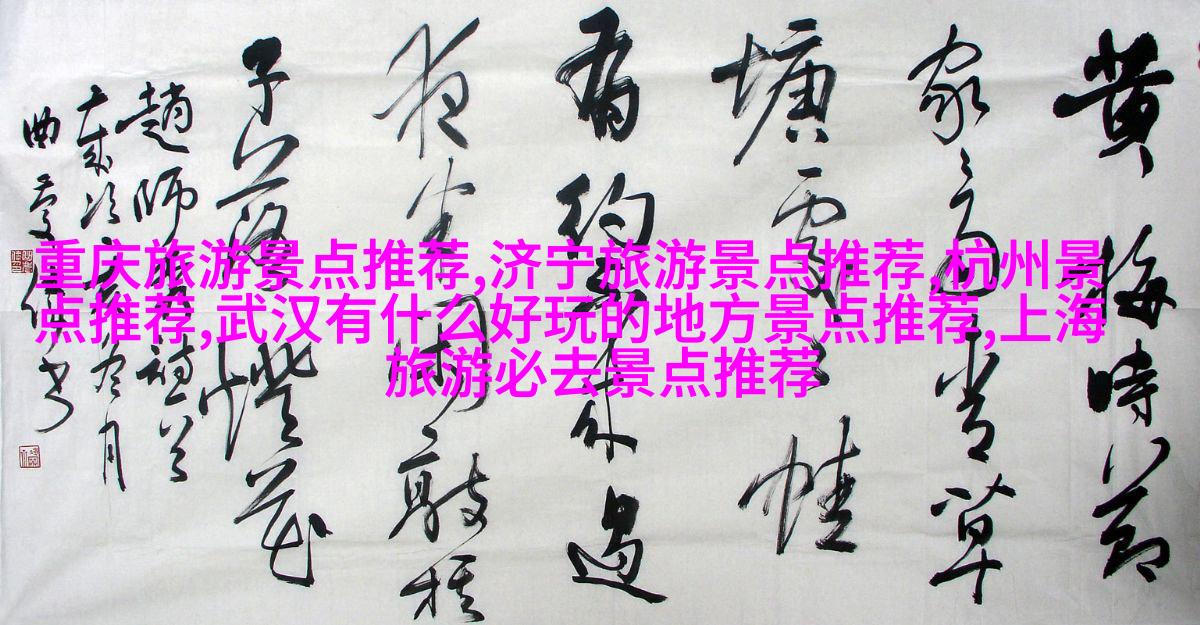 黄梅時節
家々青草
塘處々蛙
有約不来過
夜半閑敲棋
子落燈花
趙師
重庆旅游景点推荐,济宁旅游景点推荐,杭州景
点推荐,武汉有什么好玩的地方景点推荐,上海
旅游必去景点推荐